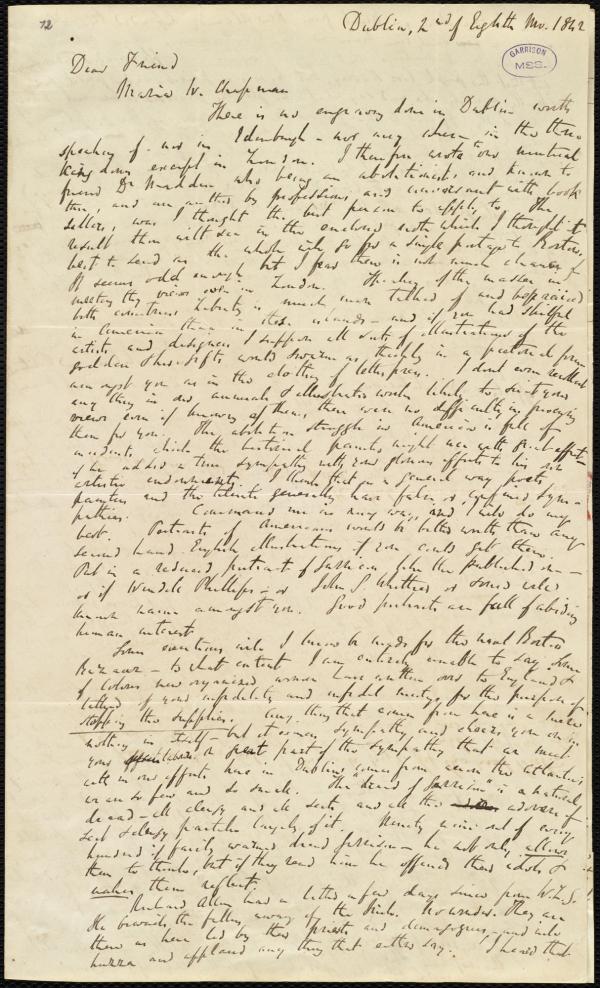 12
Dublin, 2nd of Eighth Mo. 1842
GARRISON
MSS.
Dear Friend
Maria W. Chapman
There is no engraving done in Dublin worth
speaking of - nor in Edinburgh - nor any where in the three
kingdoms except in London. I therefore wrote to our mutual
friend Dr Madden who being an abolitionist and known to
thee, and an author by profession and conversant with book
sellers, was I thought the best person to apply to. The
result thou wilt see in the enclosed note which I thought it
best to send on the whole so for a single postage to Boston.
It seems odd enough but I fear there is not much chance of
meeting thy views even in London. Speaking of the masses in
both countries Liberty is much more talked of and bepraised
in America than in these islands - and if you had skilful
artists and designers I suppose all sorts of illustrations of the
goddess &c. would swarm as thickly in a pictorial form
amongst you as in the clothing of letterpress. I dont even recollect
any thing in our annuals & illustrated works likely to suit your
views even if knowing of them, there were no difficulty in procuring
them for you. The abolition struggle in America is full of
incidents which the historical painter might use with great effect
if he added a true sympathy with your glorious efforts to his
artistic endowments. I think that in a general way poets,
painters and the talents generally have false or confused sym-
pathies. Command me in any way, and I will do my
best. Portraits of Americans would be better worth than any
second hand English illustrations if you could get them.
Put in a reduced portrait of Garrison like the published one -
or if Wendell Phillips - or John G Whittier or some well
known name amongst you. Good portraits are full of abiding
human interest.
Some exertions will I know be made for the next Boston
Bazaar - to what extent I am entirely unable to say. Some
of Colvers new organized women have written over to England &
tattled of your infidelity and infidel meetings for the purpose of
stopping the supplies. Any thing that comes from here is a mere
nothing in itself - but it conveys sympathy and cheers you on in
your great part of the sympathy that we meet
with in our efforts here in Dublin comes from across the Atlantic,
we are so few and so small. The "dread of Garrison" is a natural
dread - all clergy and all sects and all the adorers of
sect & clergy partake largely of it. Ninety nine out of every
hundred if fairly warned dread freedom - he not only allows
them to think, but if they read him he offends their idols &
makes them reflect.
Richard Allen had a letter a few days since from W.L.G.
He bewails the falling away of the Irish. No wonder. They are
there as here led by their priests and demagogues, and will
huzza and applaud any thing that either say. I heard that